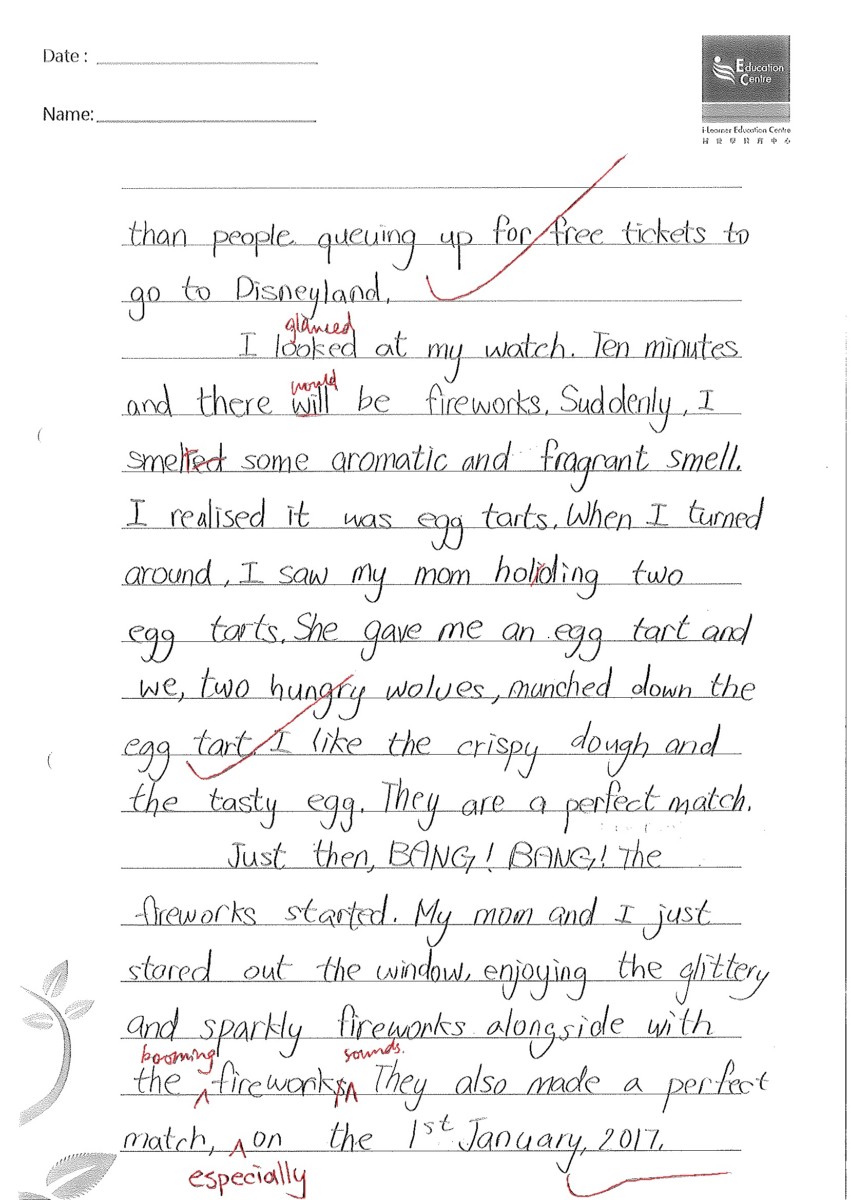 Date :
Education
Centre
Name:
i-Learner Education Centre
than people queuing up for free tickets to
go to Disneyland.
glanced
I looked at my watch. Ten minutes
would
and there will be fireworks. Suddenly, I
smelted some aromatic and fragrant smell.
I realised it was egg tarts. When I turned
around, I saw my mom holiding two
egg tarts. She gave me an egg tart and
we, two hungry wolves, munched down the
egg tart. I like the crispy dough and
the tasty egg. They are a perfect match.
Just then, BANG! BANG! The
fireworks started. My mom and I just
stared out the window, enjoying the glittery
and sparkly fireworks alongside with
booming sounds.
the fireworks. They also made a perfect
match, on the 1st January, 2017.
especially